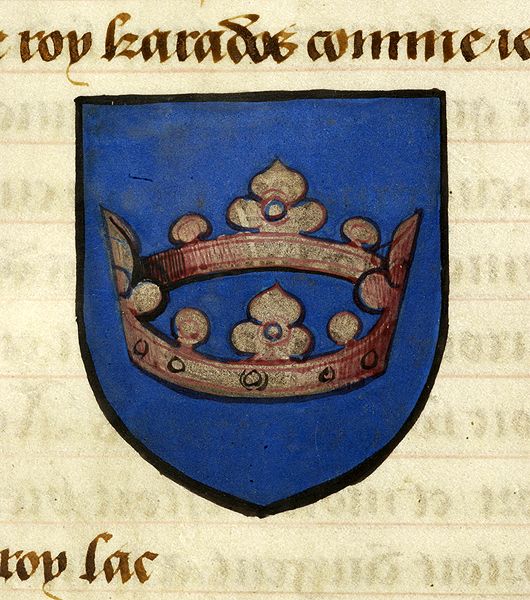 roy karados comme ie
roy lac